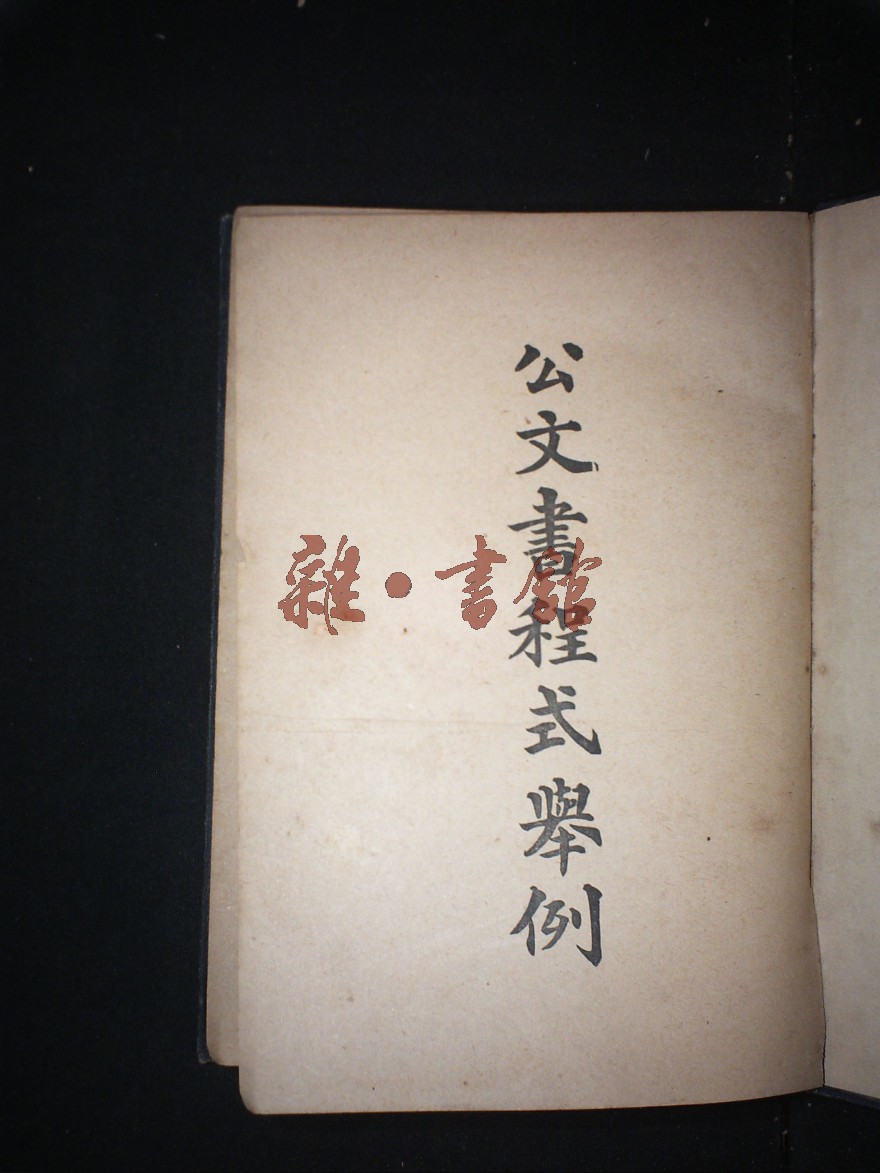 公文書程式舉例
雜·書館